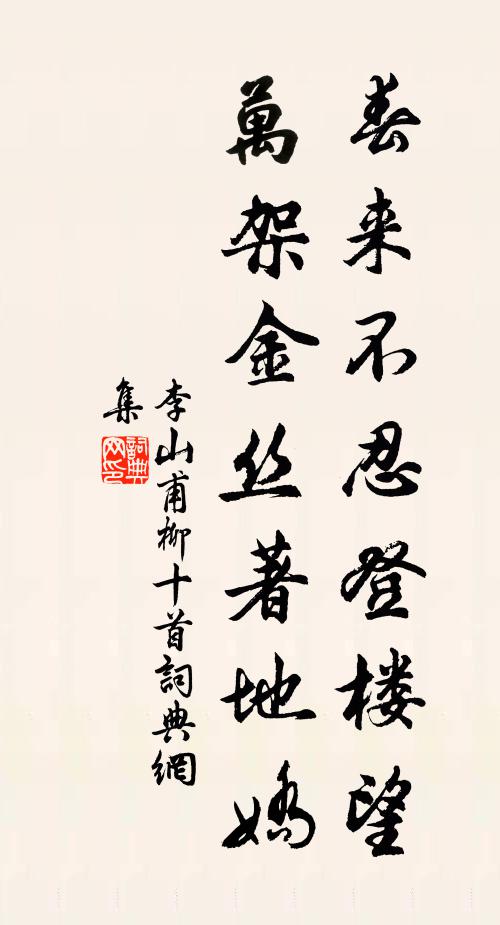 春来不忍登楼望
萬架金丝著地嬌
李山甫柳十首詞典網
集
詞典
网印